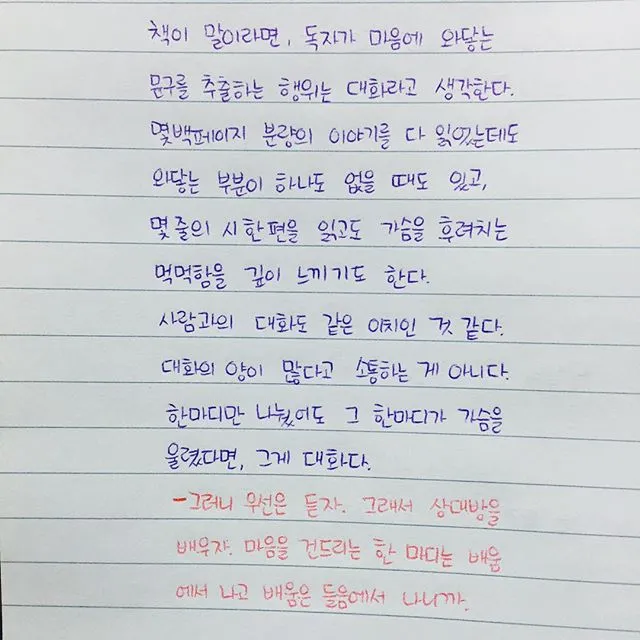 책이 말이라면, 독자가 마음에 와닿는
문구를 추출하는 행위는 대화라고 생각한다.
몇백페이지 분량의 이야기를 다 읽었는데도
와닿는 부분이 하나도 없을 때도 있고,
몇 줄의 시 한편을 읽고도 가슴을 후려치는
먹먹함을 깊이 느끼기도 한다.
사람과의 대화도 같은 이치인 것 같다.
대화의 양이 많다고 소통하는 게 아니다.
한마디만 나눴어도 그 한마디가 가슴을
울렸다면, 그게 대화다.
-그러니 우선은 듣자. 그래서 상대방을
배우자. 마음을 건드리는 한 마디는 배움
에서 나고 배움은 들음에서 나니까.